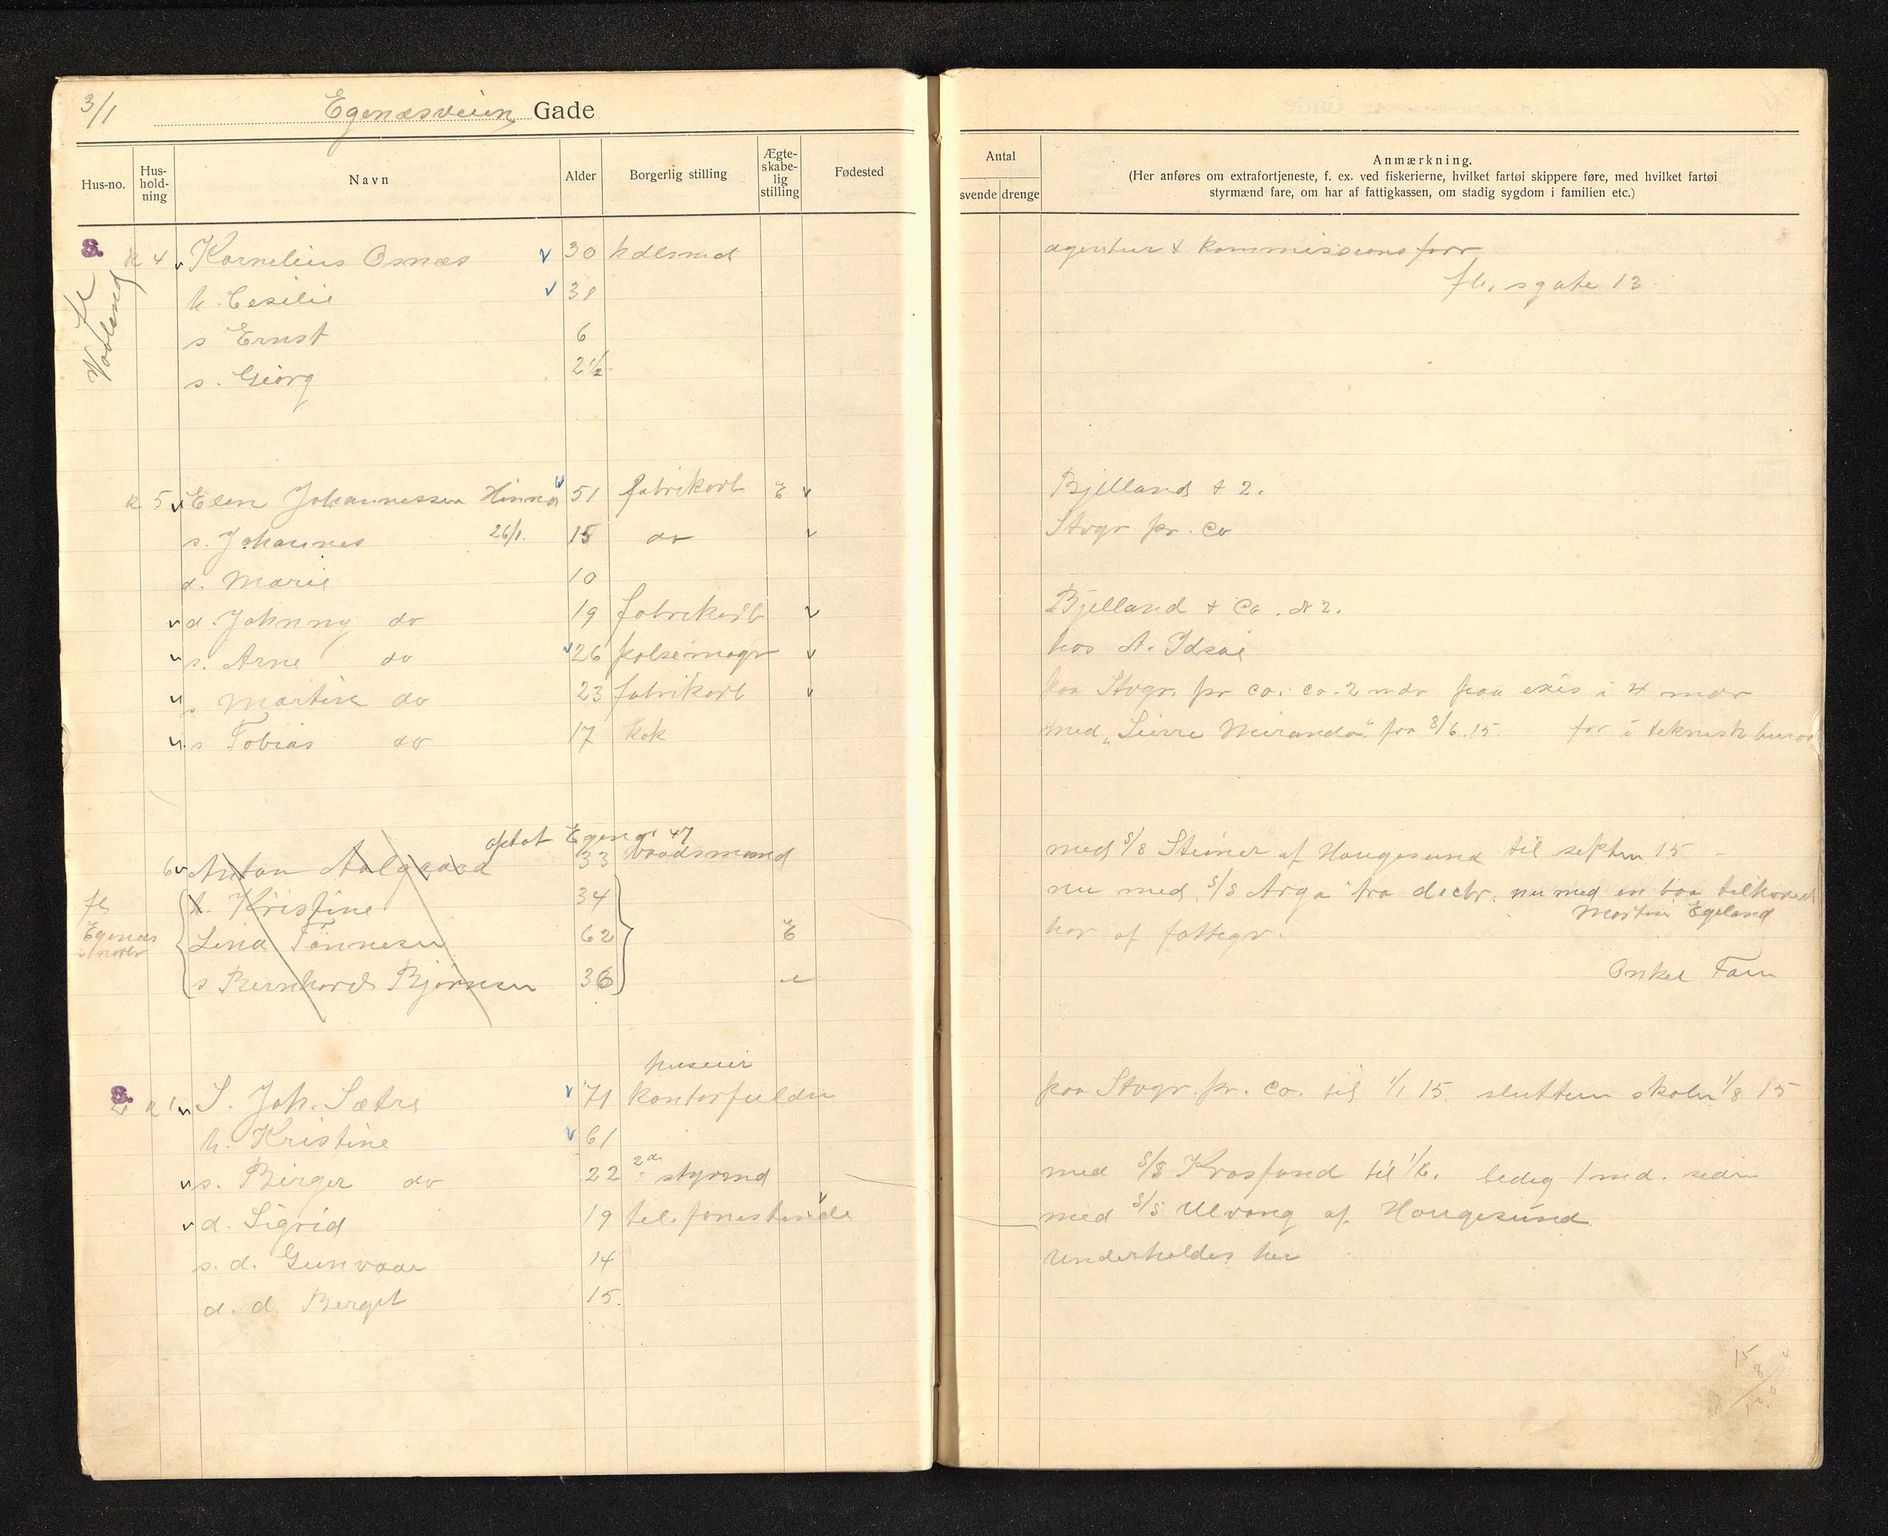 3/1 Egenæsveien Gade
Hus-no. Hus-hold-ning Navn Alder Borgerlig stilling Ægte-skabe-lig stilling Fødested
Antal svende drenge
Anmærkning.
(Her anføres om extrafortjeneste, f. ex. ved fiskerierne, hvilket fartøi skippere føre, med hvilket fartøi
styrmænd fare, om har af fattigkassen, om stadig sygdom i familien etc.)
S. 4 Kornelius Osnæs 30 hdlsmd agentur & kommissionsforr
h. Cesilie 31 sgate 13
s Ernst 6
s. Georg 2 1/2
5 Elen Johannessen Hinna 51 fabrikarb E Bjelland & 2.
s. Johannes 26/1. 15 do Stvgr pr. Co
d. Marie 10
d. Johnny do 19 fabrikarb Bjelland & Co. 2.
s. Arne do 26 pølsemagr hos A. Idsøe
s Martin do 23 fabrikarb paa Stvgr. pr co. 2 mdr paa exis i 4 mdr
s Tobias do 17 kok med „Sierre Miranda" fra 8/6.15. før i teknisk
optat Egenæs 47
6 Anton Aalgaard 33 baadsmand med S/S Steiner af Haugesund til septbr 15
h. Kristine 34 nu med S/S Arga fra decbr. nu med en
Martin Egeland
fl Egenæs
Lina Tønnesen 62 E har af fattigv.
s Bernhard Bjørnsen 36 Onkel Tom
huseier
S. 2 1 S. Joh. Sætre 71 paa Stvgr. pr. Co. til 1/1 15. skolen 1/8 15
h. Kristine 61
s. Birger do 22 2den styrmd med S/S til ledig 1 md. siden
d. Sigrid 19 telefonistinde med S/S Ulvang af Haugesund
s. d. Gunvaar 14 underholdes her
d. d. Berget 15.